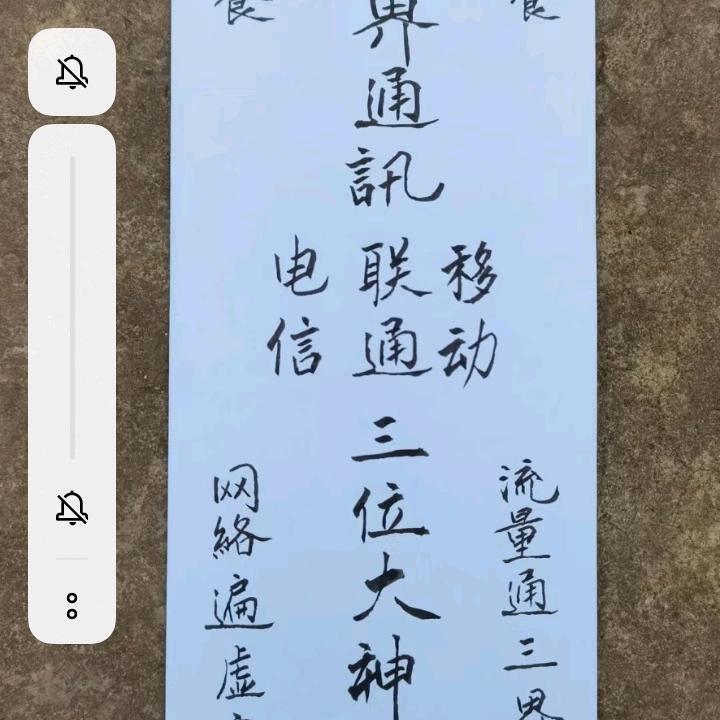 界通訊
移动
联通
电信
三位大神
流量通三界
网絡遍虚